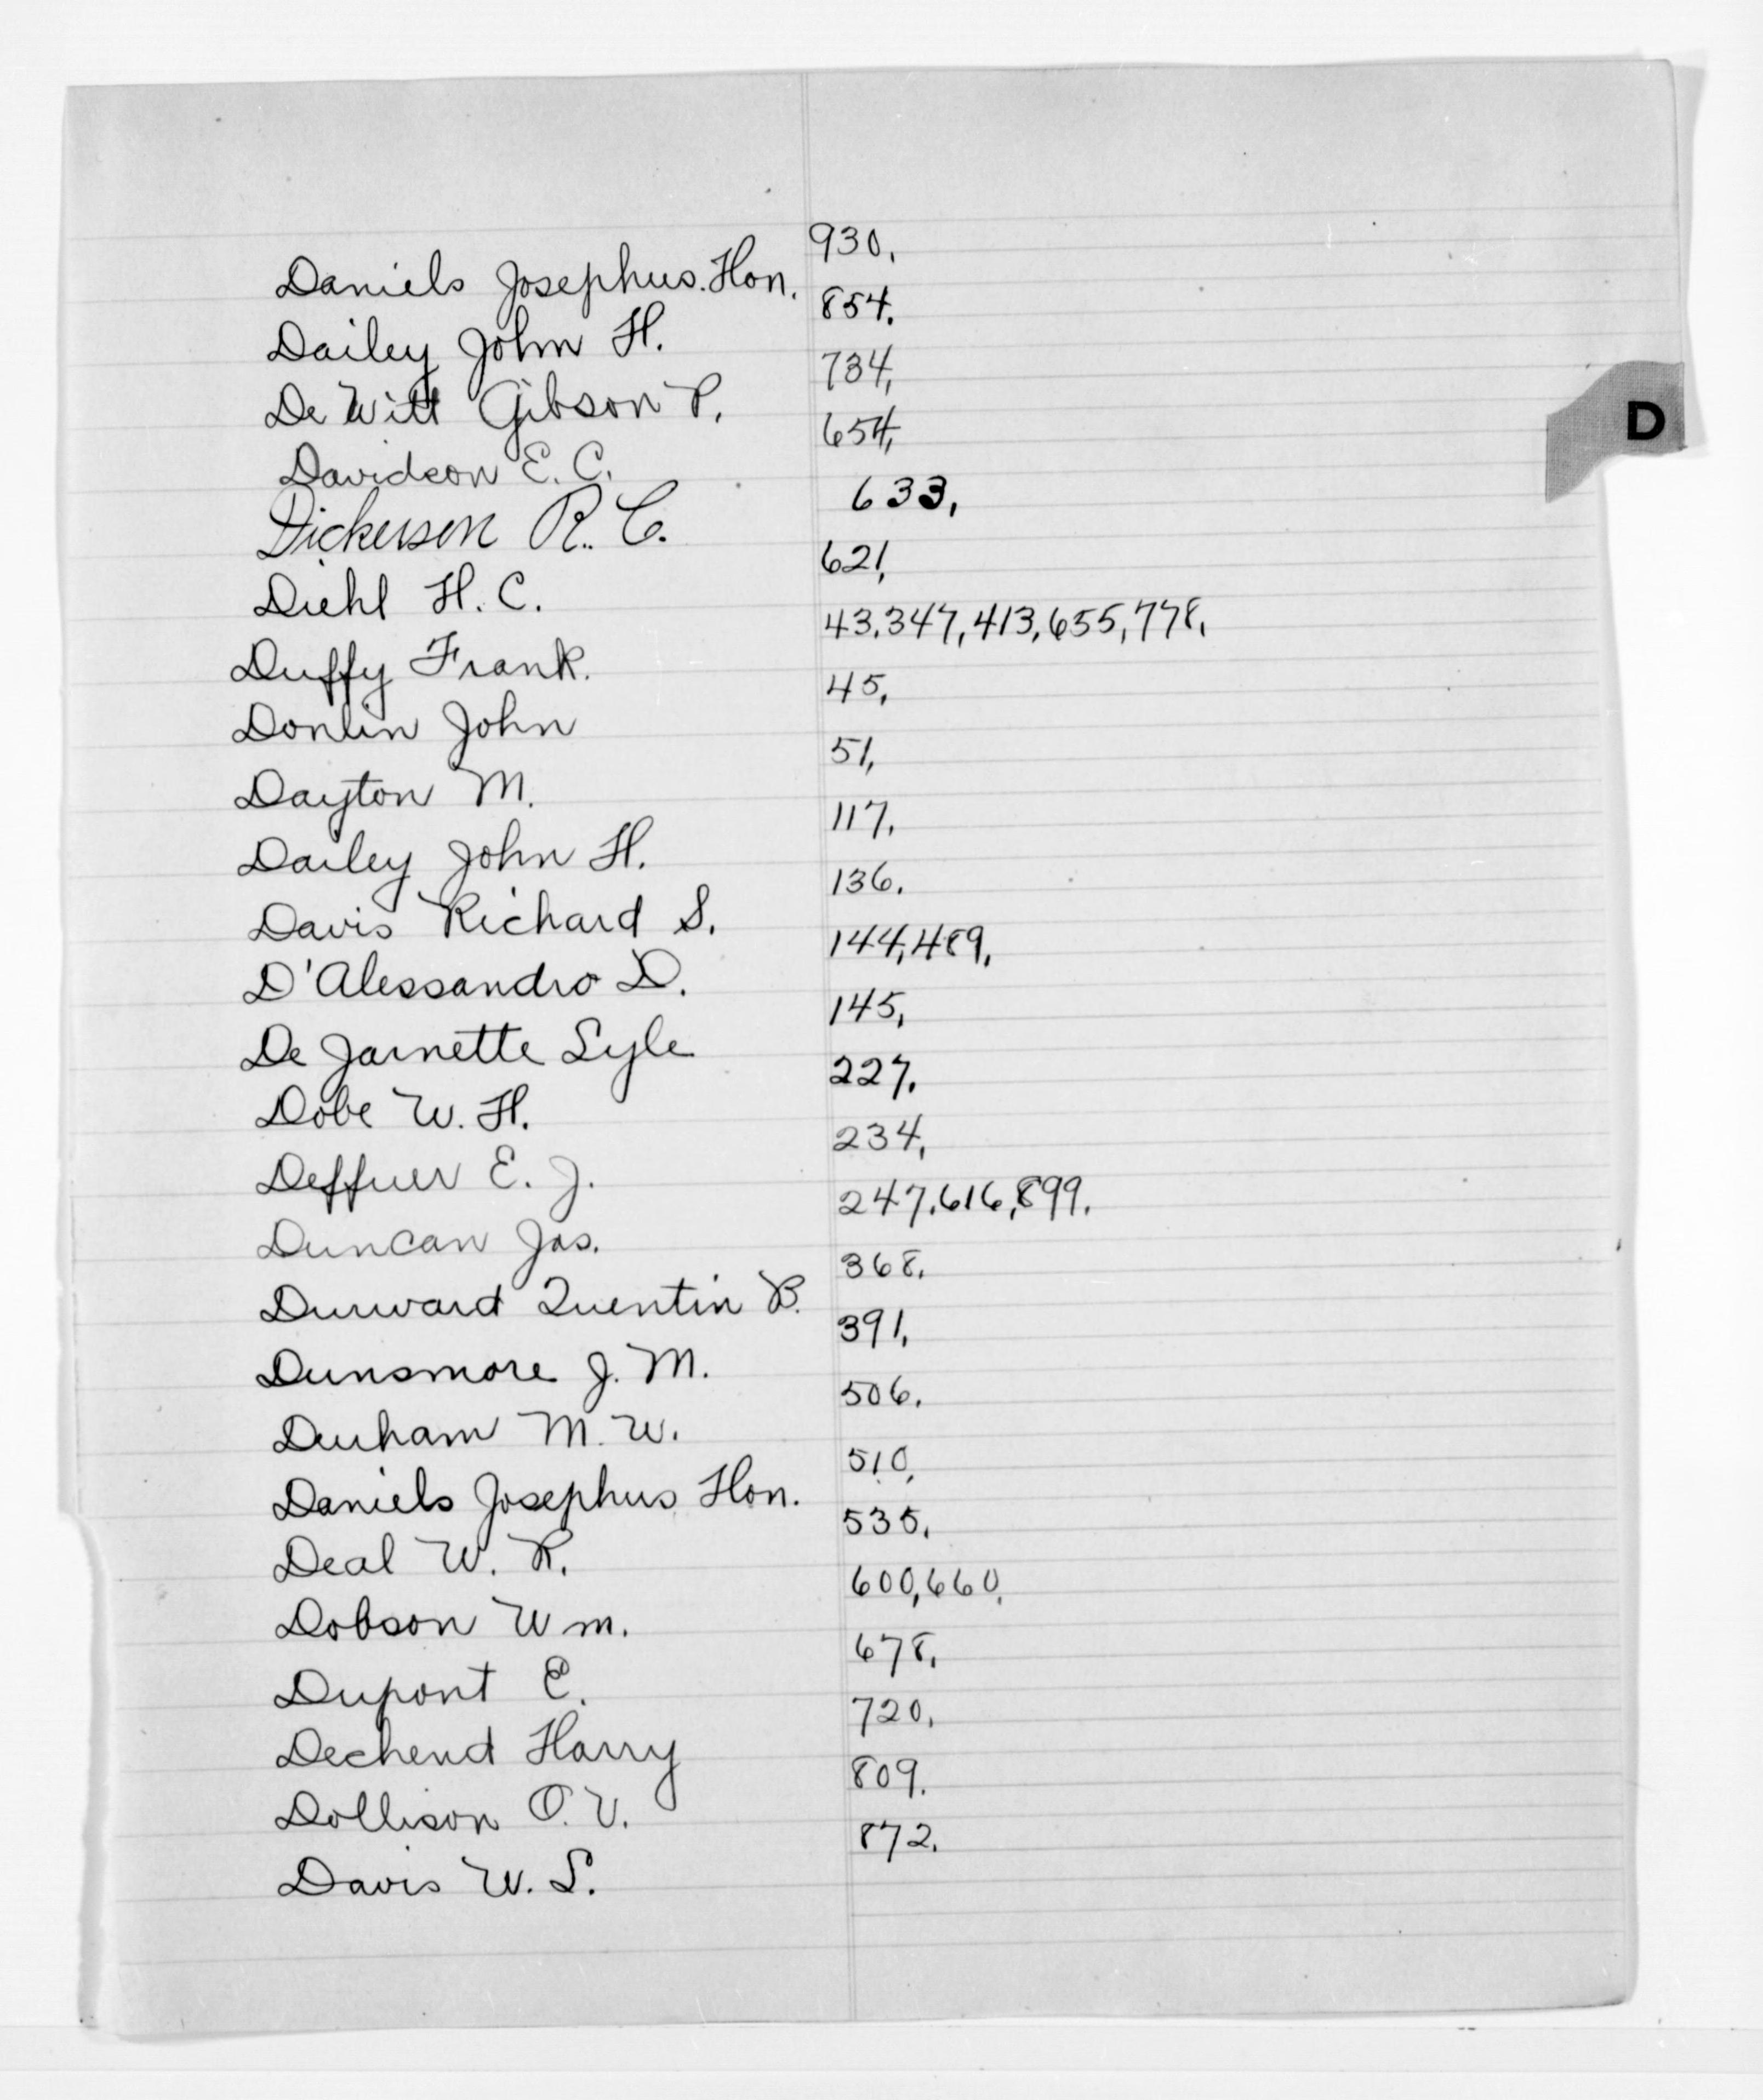 Daniels Josephus. Hon. 930,
Dailey John H. 854,
De Witt Gibson P. 734,
Davidson E. C. 654,
Dickerson R. C. 633,
D
Diehl H. C. 621,
Duffy Frank. 43,347,413,655,778,
Donlin John 45,
Dayton M. 51,
Dailey John H. 117,
Davis Richard S. 136.
D'Alessandro D. 144,489,
De Jarnette Lyle 145,
Dobe W. H. 227,
Deffner E. J. 234,
Duncan Jas. 247,616,899.
Durward Quentin B. 368,
Dunsmore J. M. 391,
Durham M. W. 506.
Daniels Josephus Hon. 510,
Deal W. R. 535,
Dobson Wm. 600,660,
Dupont E. 678,
Dechend Harry 720,
Dollison O. V. 809.
Davis W. S. 872.